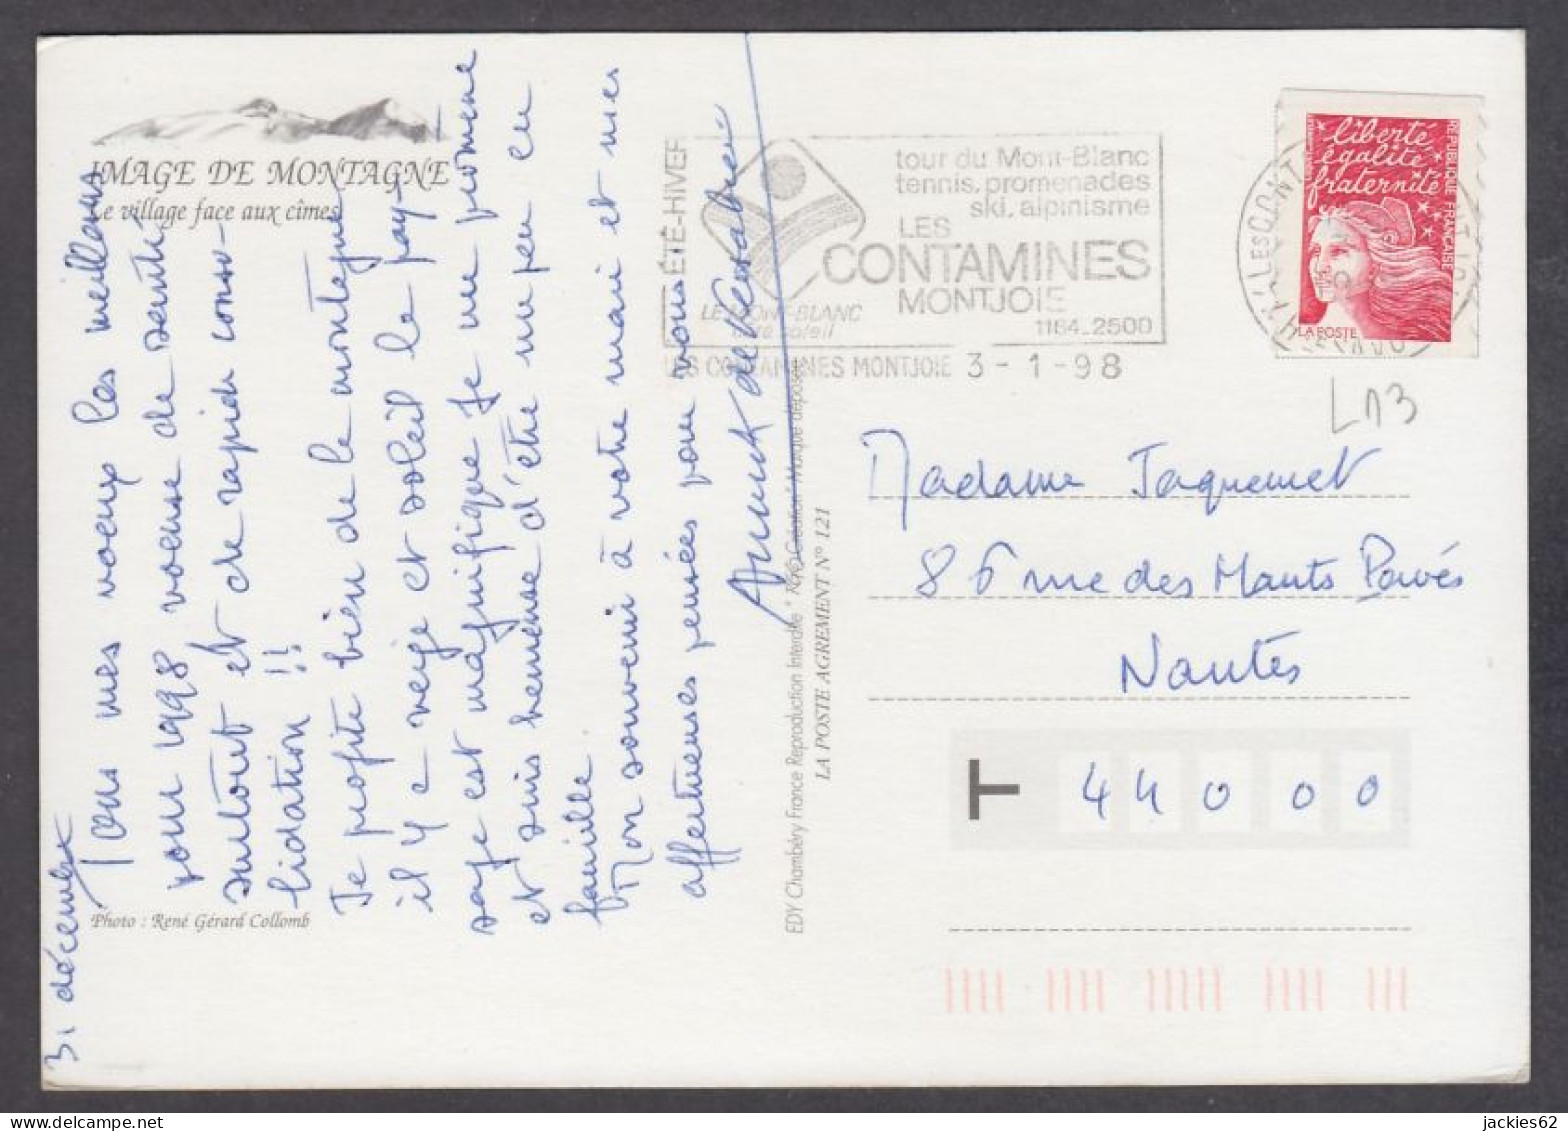 31 décembre
Tous mes voeux les meilleurs
pour 1998 voeux de santé
surtout et de rapide conso-
lidation !!
Je profite bien de la montagne
il y a neige et soleil le pay-
sage est magnifique Je me promène
et suis heureuse d'être un peu en
famille
Mon souvenir à votre mari et mes
affectueuses pensées pour vous
IMAGE DE MONTAGNE
Le village face aux cîmes
Photo : René Gérard Collomb
EDY Chambéry France Reproduction Interdite
LA POSTE AGREMENT N° 121
ÉTÉ-HIVER
tour du Mont-Blanc
tennis. promenades
ski. alpinisme
LES
CONTAMINES
MONTJOIE
1164-2500
LES CONTAMINES MONTJOIE 3-1-98
liberté
égalité
fraternité
REPUBLIQUE FRANÇAISE
LA POSTE
Madame Jaquemet
86 rue des Hauts Pavés
Nantes
T 44000
jackies62